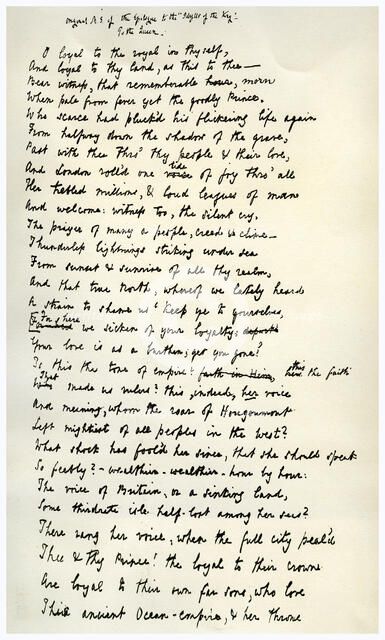 Original M.S. of the Epilogue to the "Idylls of the King".
To the Queen.
O loyal to the royal in thyself,
And loyal to thy land, as this to thee—
Bear witness, that rememberable hour, morn
When pale from fever yet the goodly Prince,
Who scarce had pluck'd his flickering life again
From halfway down the shadow of the grave,
Past with thee thro' thy people & their love,
And London roll'd one tide of joy thro' all
Her trebled millions, & loud leagues of man
And welcome: witness too, the silent cry,
The prayer of many a people, creed & clime—
Thunderless lightnings striking under sea
From sunset & sunrise of all thy realm,
And that true North, whereof we lately heard
A strain to shame us 'Keep ye to yourselves,
For here
we sicken of your loyalty;
Your love is as a burthen; get you gone.'
Is this the tone of empire? faith in him, this the faith
That made us rulers? this, indeed, her voice
And meaning, whom the roar of Hougoumont
Left mightiest of all peoples in the west?
What shock has fool'd her since, that she should speak
So feebly? – wealthier – wealthier – hour by hour:
The voice of Britain, or a sinking land,
Some thirdrate isle half-lost among her seas?
There rang her voice, when the full city peal'd
Thee & thy Prince! the loyal to their crown
Are loyal to their own far sons, who love
Their ancient Ocean-empire, & her throne